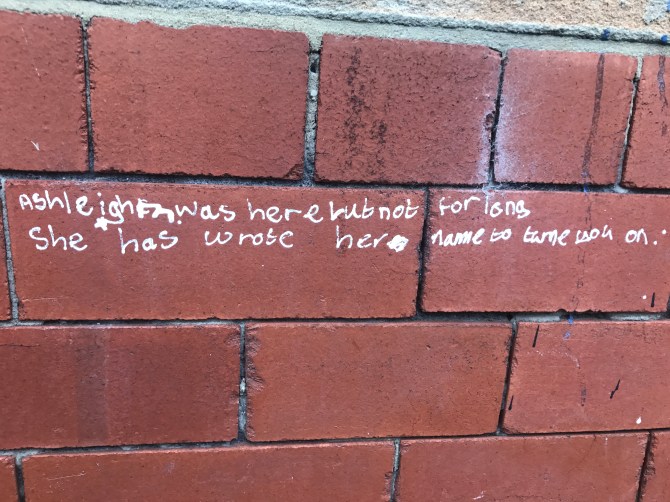 Ashleigh was here but not for long
She has wrote her name to turne you on.